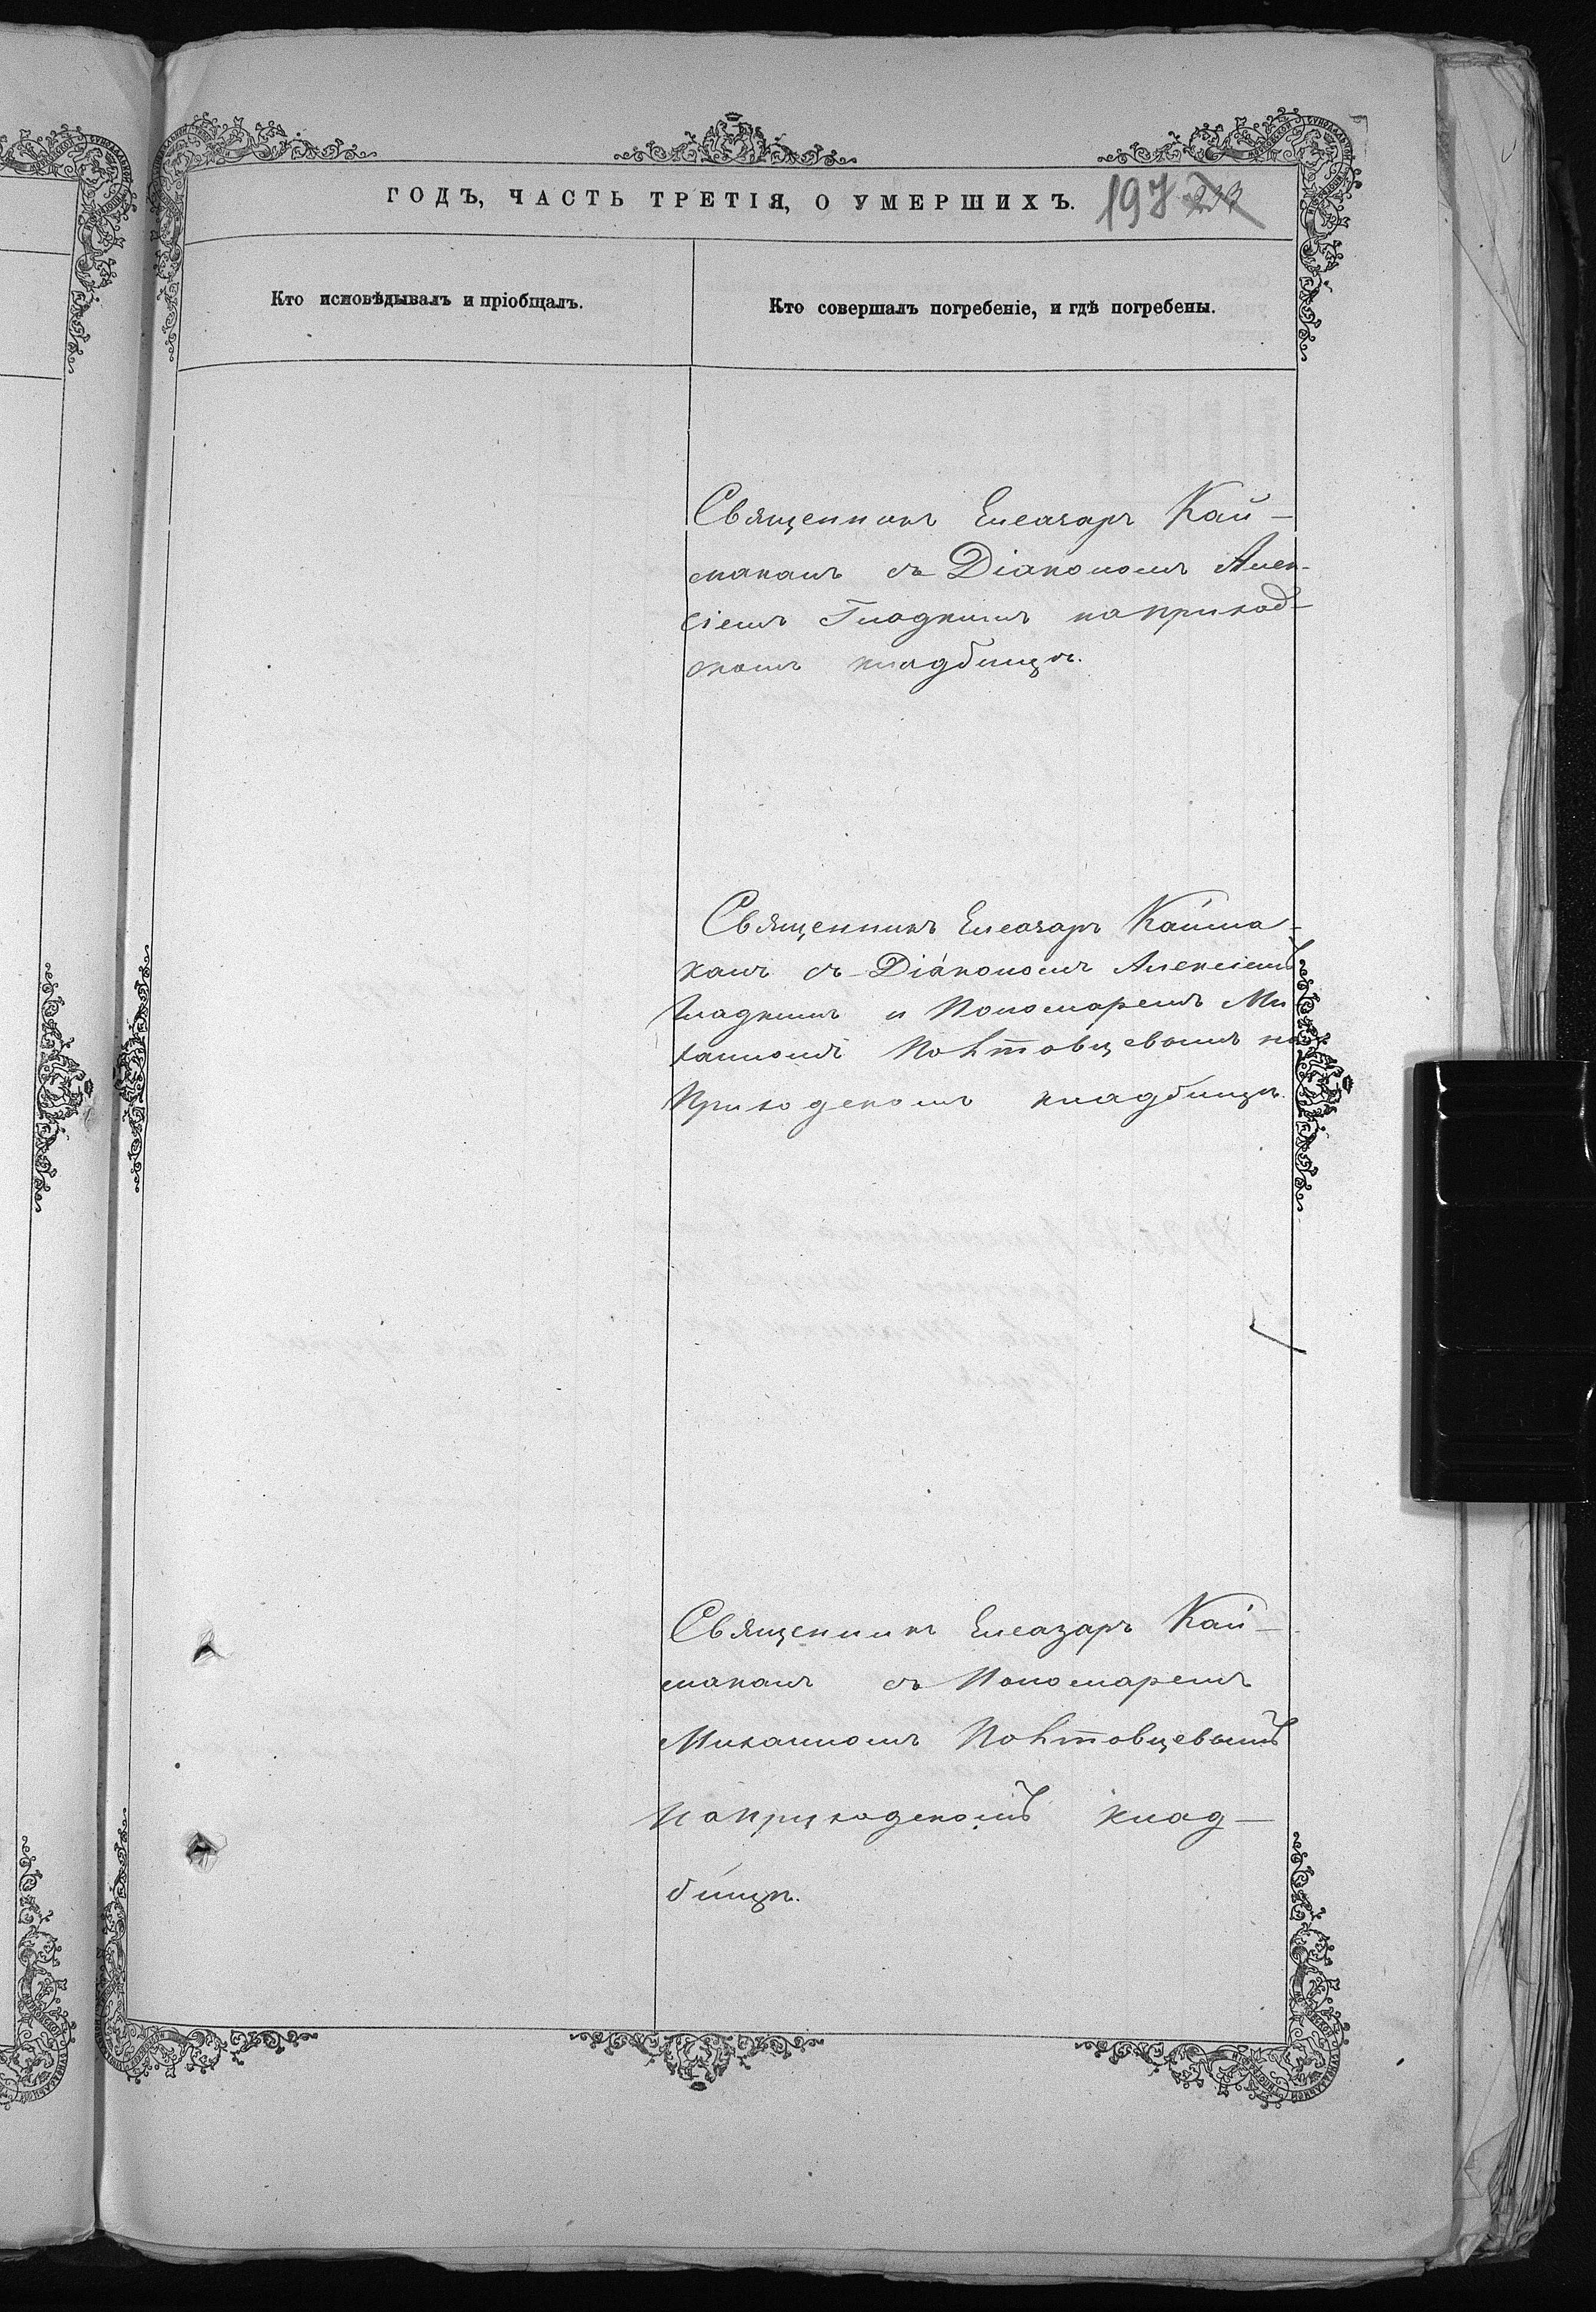 ГОДЪ, ЧАСТЬ ТРЕТІЯ, О УМЕРШИХЪ.
197
Кто исповѣдывалъ и пріобщалъ.
Кто совершалъ погребеніе, и гдѣ погребены.
Священникъ Елеазаръ Кай-
маканъ съ Діакономъ Алек-
сіемъ Гладкимъ на приход-
скомъ кладбищѣ.
Священникъ Елеазаръ Кайма-
канъ съ Діакономъ Алексіемъ
Гладкимъ и Пономаремъ Ми
хаиломъ Полтовцевымъ на
Приходскомъ кладбищѣ.
Священникъ Елеазаръ Кай-
маканъ съ Пономаремъ
Михаиломъ Полтовцевымъ
на приходскомъ клад-
бищѣ.